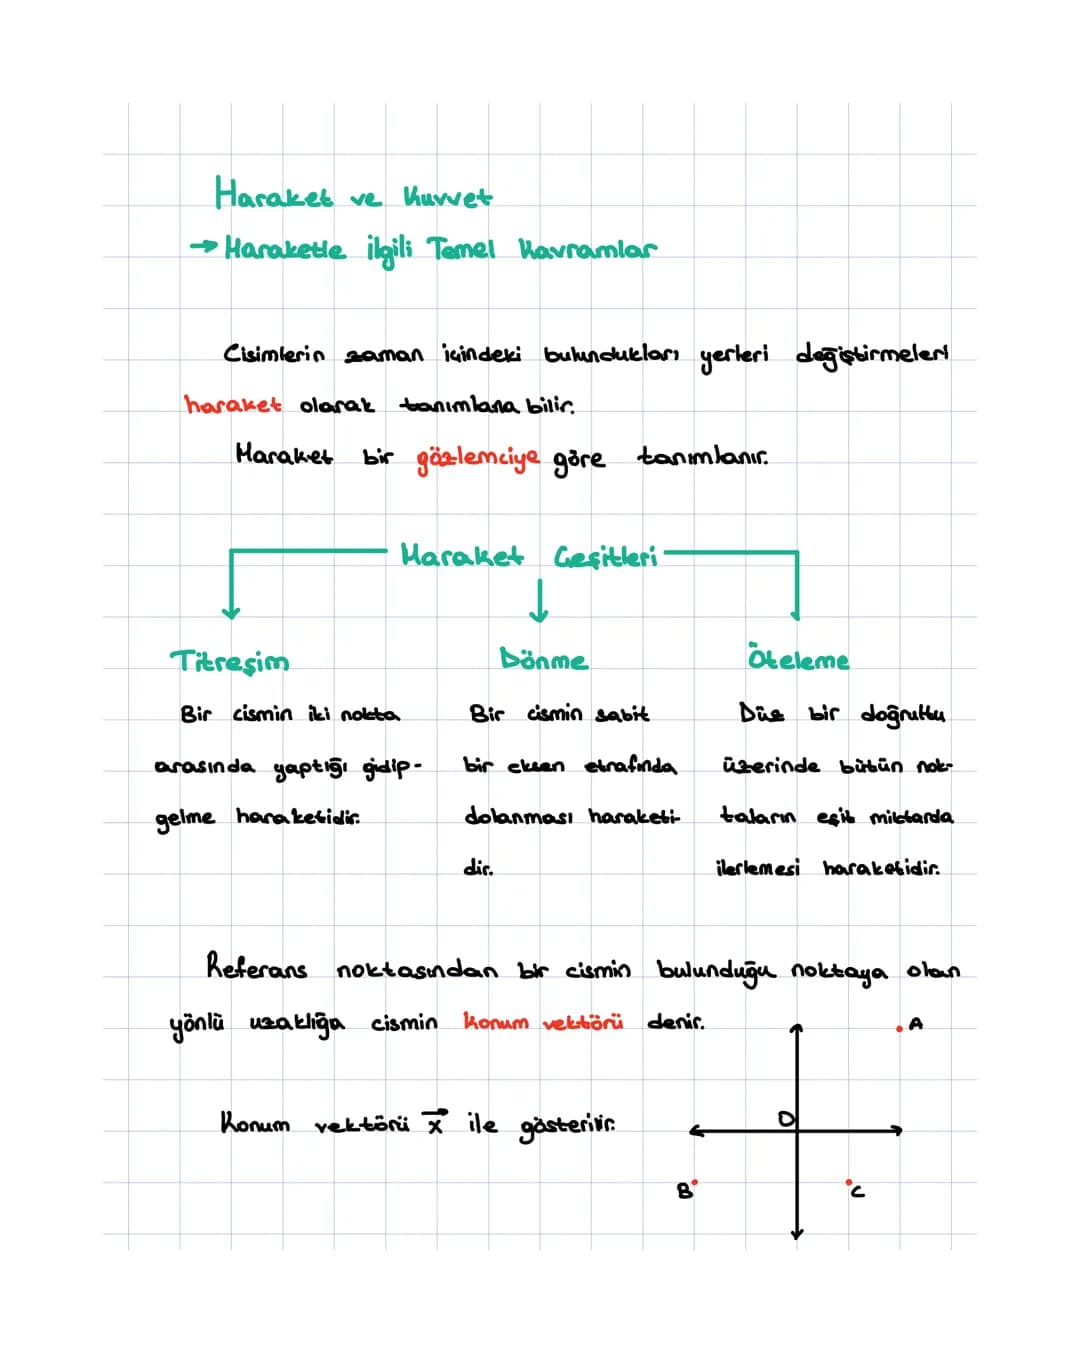 Haraket ve Kuvvet
→ Haraketle ilgili Temel Kavramlar
Cisimlerin zaman içindeki bulundukları yerleri değiştirmeleri
haraket olarak tanımlana bilir.
Haraket bir gözlemciye göre tanımlanır.
Haraket Çeşitleri
Titreşim
Bir cismin iki nokta
arasında yaptığı gidip-
gelme haraketidir.
Dönme
Bir cismin sabit
bir eksen etrafında
dolanması haraketi-
dir.
Öteleme
Düz bir doğrultu
üzerinde bütün nok-
taların eşit miktarda
ilerlemesi haraketidir.
Referans noktasından bir cismin bulunduğu noktaya olan
yönlü uzaklığa cismin konum vektörü denir.
Konum vektörü x⃗ ile gösterilir.
A
O
B
C